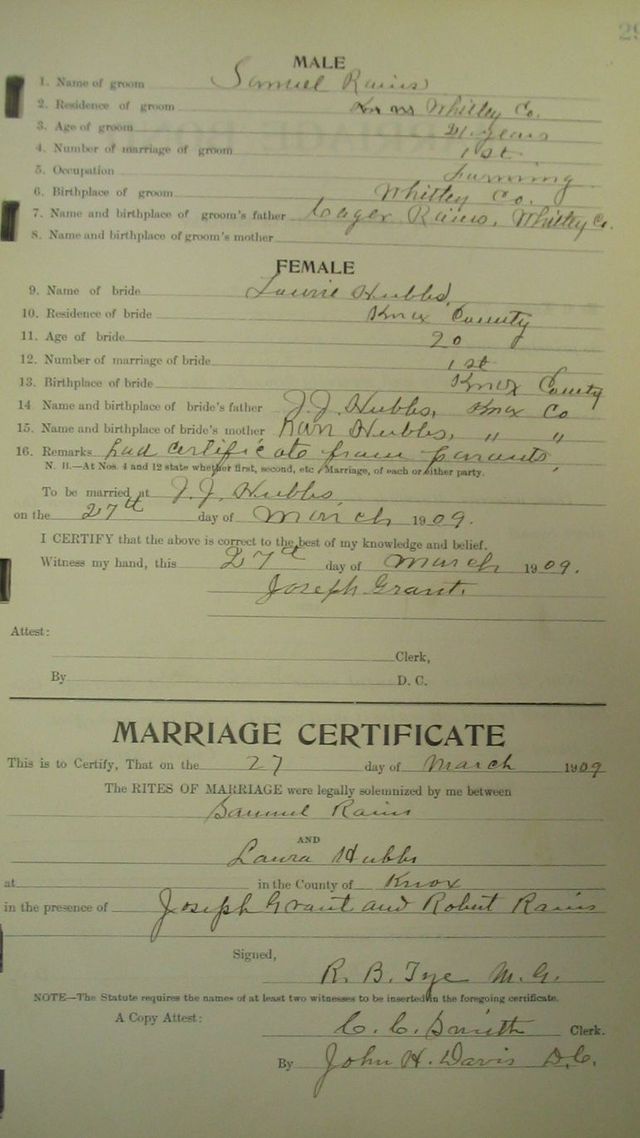 29
MALE
1. Name of groom Samuel Rains
2. Residence of groom Whitley Co.
3. Age of groom 21 years
4. Number of marriage of groom 1st
5. Occupation Farming
6. Birthplace of groom Whitley Co.
7. Name and birthplace of groom's father Cager Rains, Whitley Co.
8. Name and birthplace of groom's mother
FEMALE
9. Name of bride Laurie Hubbs,
10. Residence of bride Knox County
11. Age of bride 20
12. Number of marriage of bride 1st
13. Birthplace of bride Knox County
14 Name and birthplace of bride's father J.J. Hubbs, Knox Co
15. Name and birthplace of bride's mother Nan Hubbs, " "
16. Remarks had certificate from parants,
N. B.—At Nos. 4 and 12 state whether first, second, etc., Marriage, of each or either party.
To be married at J.J. Hubbs
on the 27th day of March 1909.
I CERTIFY that the above is correct to the best of my knowledge and belief.
Witness my hand, this 27th day of March 1909.
Joseph Grant.
Attest:
Clerk,
By D. C.
MARRIAGE CERTIFICATE
This is to Certify, That on the 27 day of March 1909
The RITES OF MARRIAGE were legally solemnized by me between
Samuel Rains
AND
Laura Hubbs
at in the County of Knox
in the presence of Joseph Grant and Robert Rains
Signed,
R. B. Tye M. G.
NOTE—The Statute requires the names of at least two witnesses to be inserted in the foregoing certificate.
A Copy Attest: C. C. Smith Clerk.
By John H. Davis D.C.